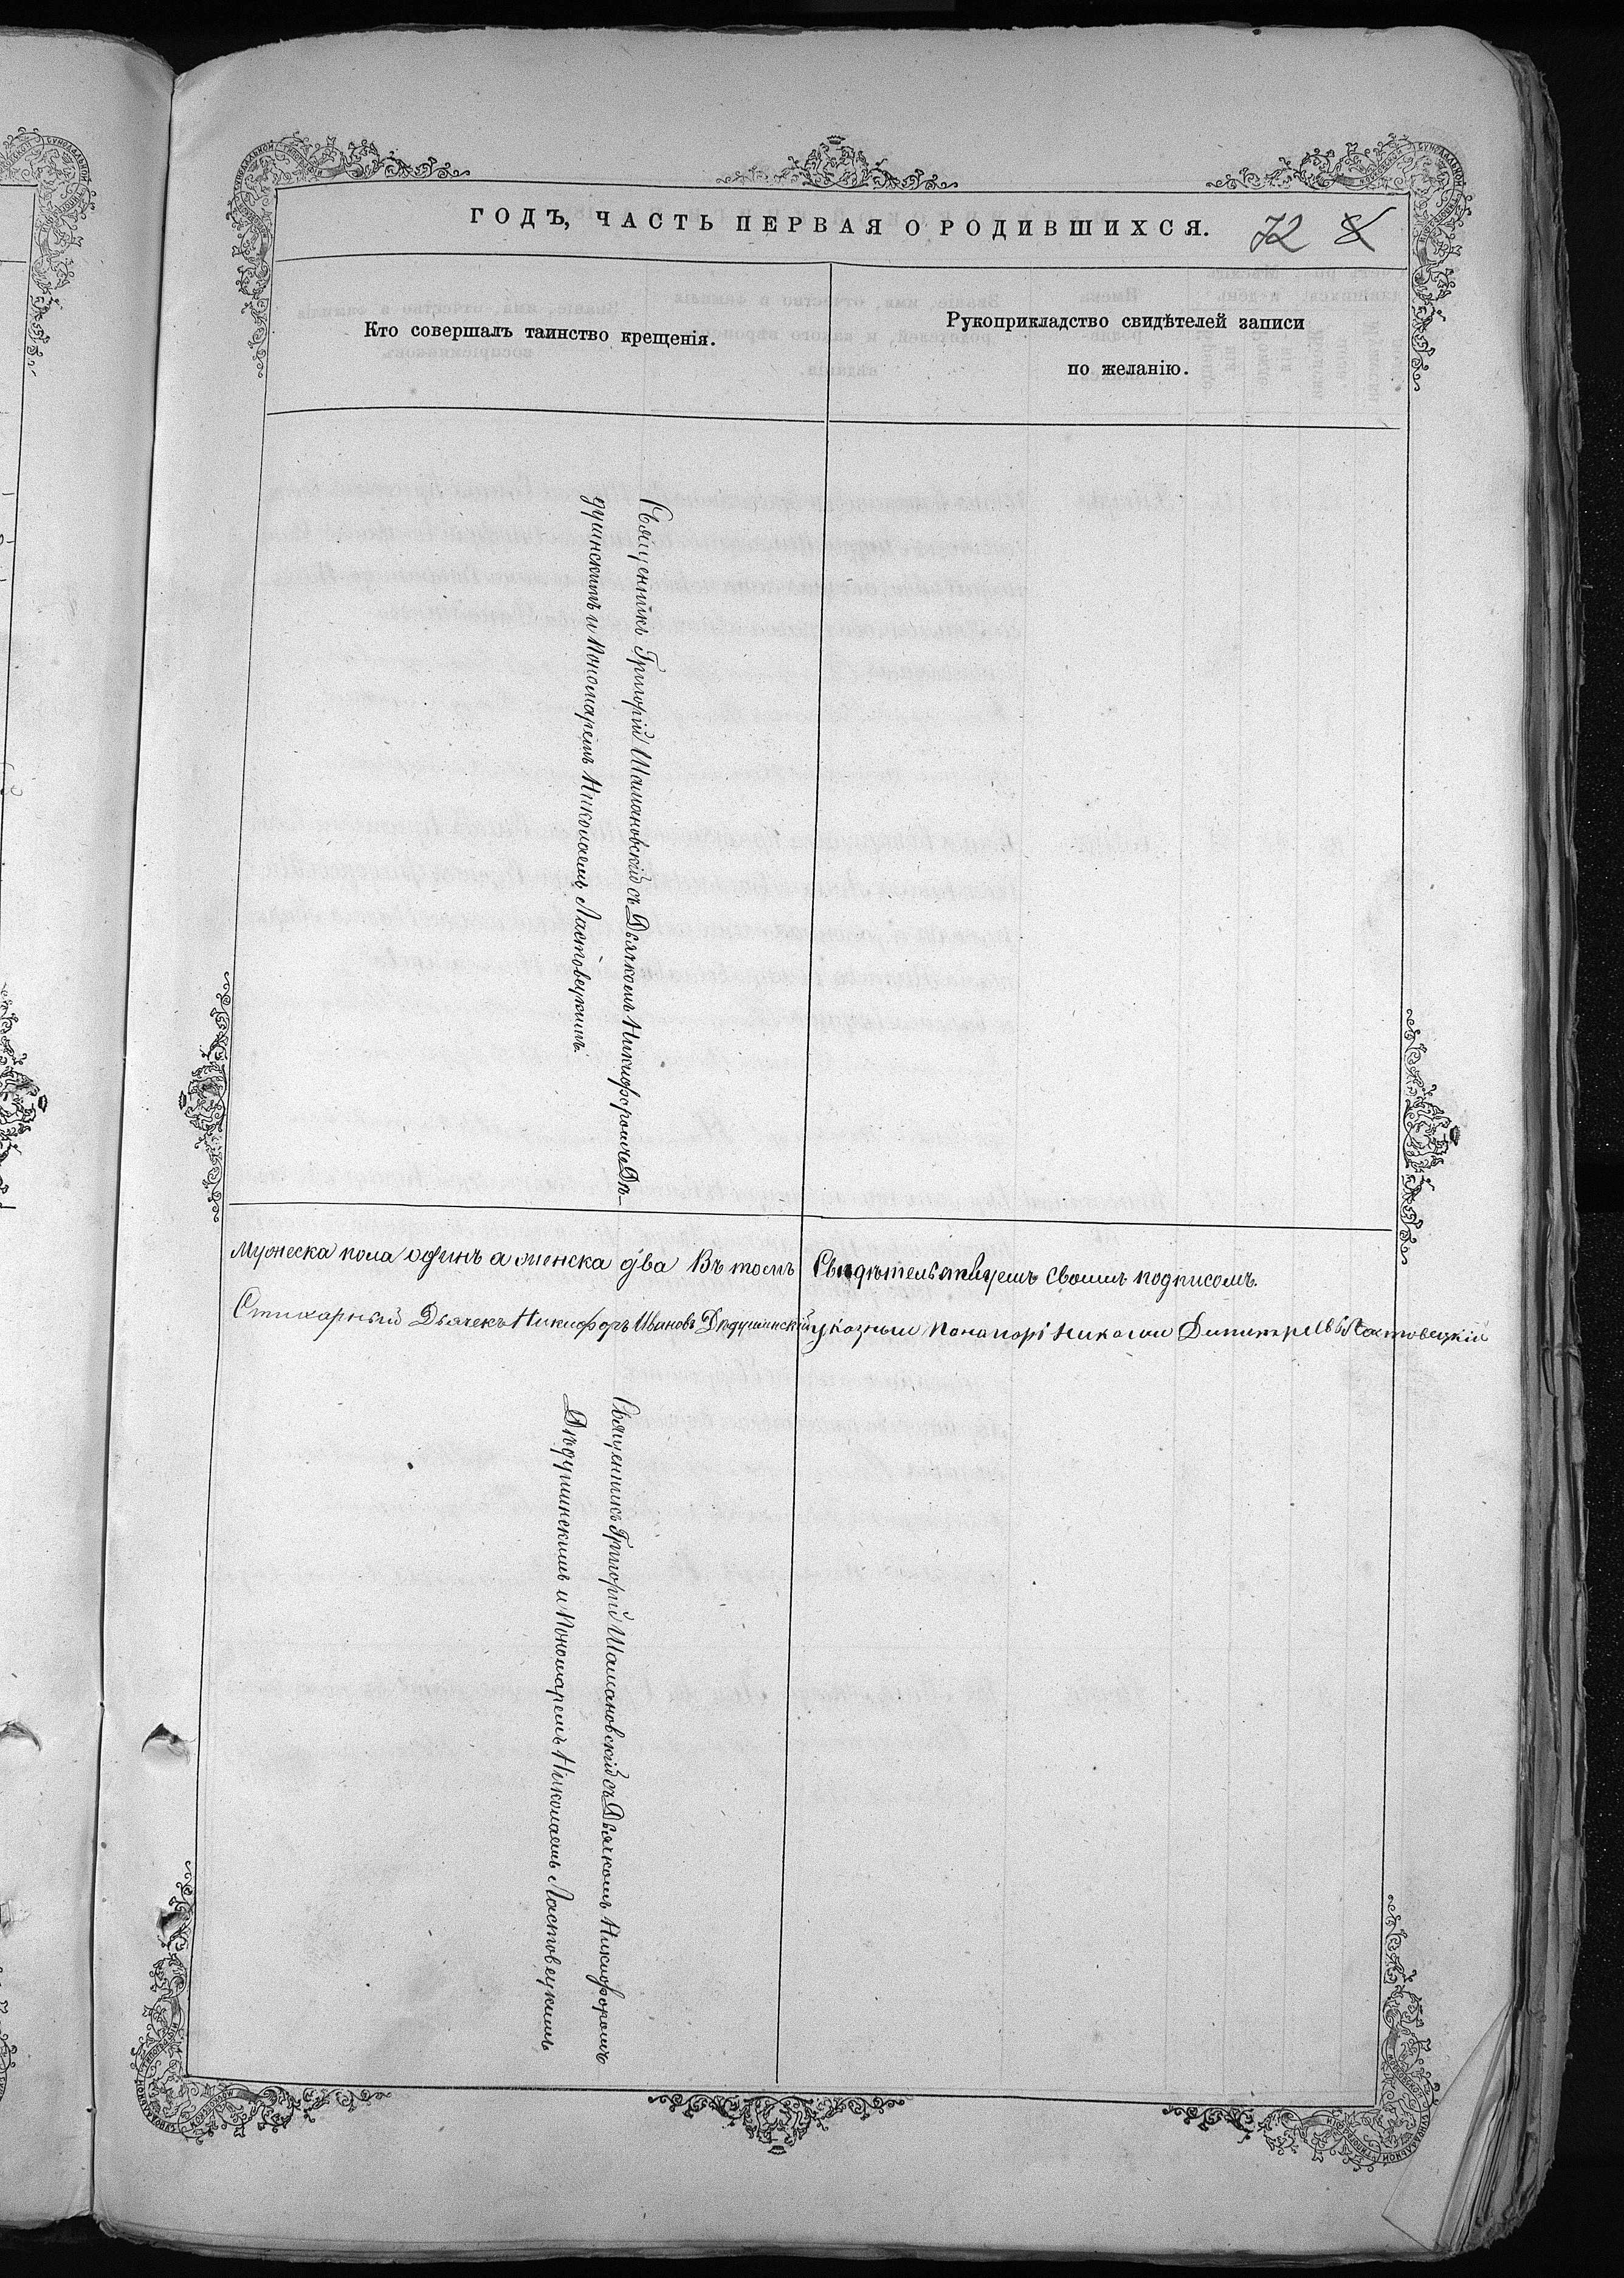 ГОДЪ, ЧАСТЬ ПЕРВАЯ О РОДИВШИХСЯ.
72
Кто совершалъ таинство крещенія.
Рукоприкладство свидѣтелей записи
по желанію.
Священникъ Григорій Шамановскій съ Дьячкомъ Никифоромъ Дѣ-
душинскимъ и Пономаремъ Николаемъ Ластовецкимъ.
Мужеска пола одинъ а женска два Въ томъ Свидѣтельствуемъ своимъ подписомъ.
Стихарный Дьячекъ Никифоръ Ивановъ Дѣдушинскій
указный Понаморі Николай Димитріевъ Ластовецкій
Священникъ Григорій Шамановскій съ Дьячкомъ Никифоромъ
Дѣдушинскимъ и Пономаремъ Николаемъ Ластовецкимъ